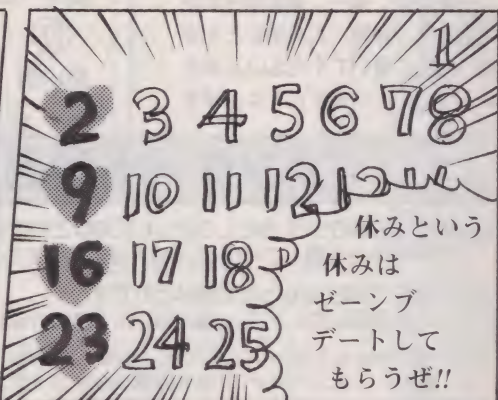 1
2 3 4 5 6 7 8
9 10 11 12
16 17 18
23 24 25
休みという
休みは
ゼーンブ
デートして
もらうぜ!!